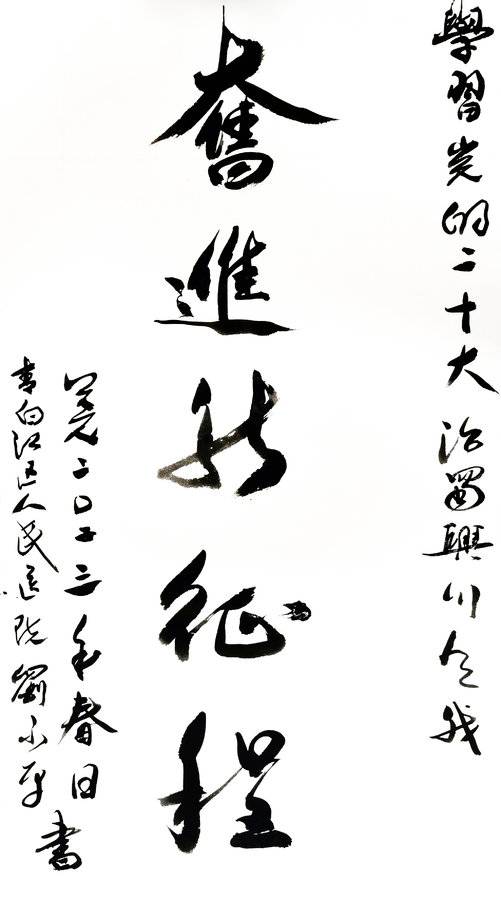 學習党的二十大治蜀興川我
奮進新征程
公元二〇二三年春日
青白江區人民医院劉小平書